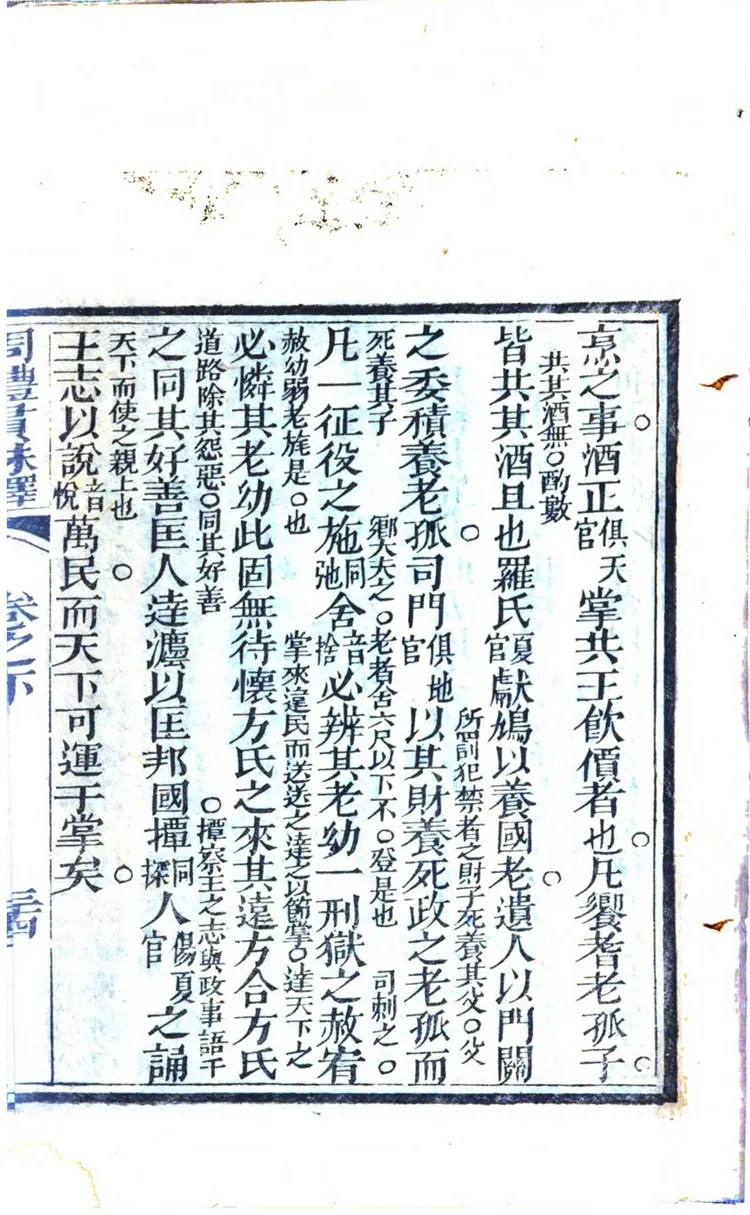 烹之事酒正天官俱掌共王飲價者也凡饗耆老孤子
共其酒無○酌數
皆共其酒且也羅氏夏官獻鳩以養國老遺人以門關
所罰犯禁者之財子死養其父○父
之委積養老孤司門地官俱以其財養死政之老孤而
死養其子
鄉大夫之○老者舍六尺以下不○登是也
司刺之○
凡一征役之施同弛舍音捨必辨其老幼一刑獄之赦宥
赦幼弱老旄是○也
掌來遠民而送送之達之以節掌○達天下之
必憐其老幼此固無待懷方氏之來其遠方合方氏
道路除其怨惡○同其好善
○撢察王之志與政事語于
之同其好善匡人達灋以匡邦國撢同探人夏官之誦
天下而使之親上也
王志以說音悅萬民而天下可運于掌矣
周禮貫珠譯
卷之下
三四